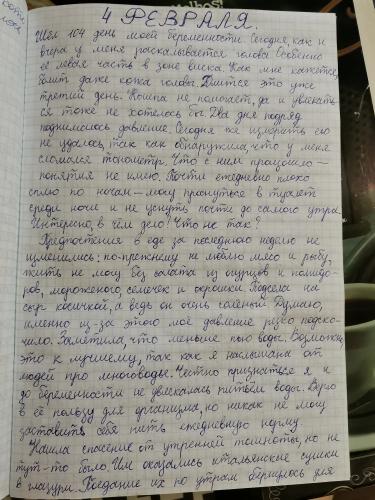 4 ФЕВРАЛЯ.
Шёл 104 день моей беременности. Сегодня, как и
вчера у меня раскалывается голова. Особенно
её левая часть в зоне виска. Как мне кажется,
болит даже кожа головы. Длится это уже
третий день. Кошпа не помогает, да и увлекать-
ся тоже не хотелось бы. Два дня подряд
поднималось давление. Сегодня же измерить его
не удалось, так как обнаружила, что у меня
сломался тонометр. Что с ним произошло –
понятия не имею. Почти ежедневно плохо
сплю по ночам – могу проснуться в туалет
среди ночи и не уснуть почти до самого утра.
Интересно, в чём дело? Что не так?
Предпочтения в еде за последнюю неделю не
изменились: по-прежнему не люблю мясо и рыбу,
жить не могу без салата из огурцов и помидо-
ров, мороженого, семечек и окрошки. Подсела на
сыр косичкой, а ведь он очень солёный. Думаю,
именно из-за этого моё давление резко подско-
чило. Заметила, что меньше пью воды. Возможно,
это к лучшему, так как я наслышана от
людей про многоводье. Честно признаться я и
до беременности не увлекалась питьём воды. Верю
в её пользу для организма, но никак не могу
заставить себя пить ежедневную норму.
Нашла спасение от утренней тошноты, но не
тут-то было. Им оказались итальянские сушки
в глазури. Поедание их по утрам вернулось для